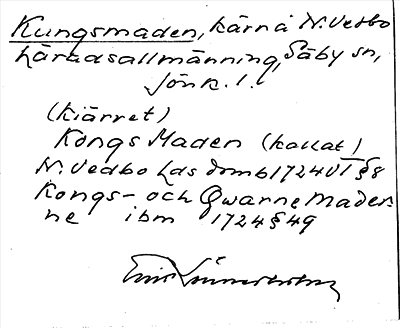 Kungsmaden, kärr å N. Vedbo
häradsallmänning, Säby sn,
Jönk. l.
(kiärret)
Kongs Maden (kallat)
N. Vedbo hds domb 1724 VI § 8
Kongs- och Qwarne Mader-
ne ibm 1724 § 49